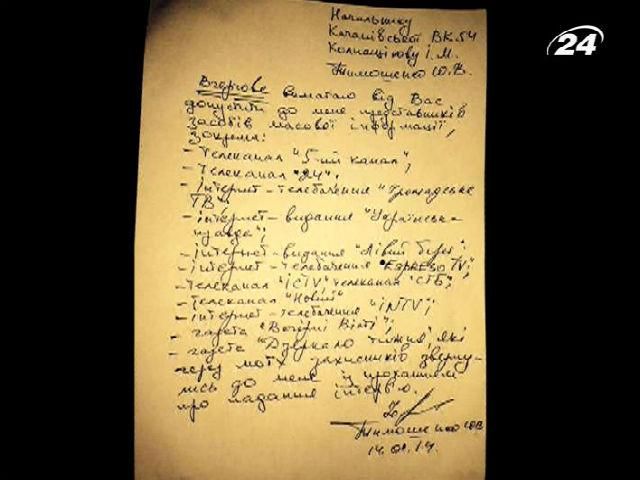 24
Начальнику
Качанівської ВК54
Колпащікову І. М.
Тимошенко Ю.В.
Вчергове вимагаю від Вас
допустити до мене представників
засобів масової інформації,
зокрема:
- телеканал "5-ий канал";
- телеканал "24";
- інтернет-телебачення "Громадське
ТВ";
- інтернет-видання "Українська
правда";
- інтернет-видання "Лівий берег";
- інтернет-телебачення "ESPRESO TV";
- телеканал "ICTV" телеканал "СТБ";
- телеканал "Новий"
- інтернет-телебачення "INTV";
- газета "Вечірні Вісті";
- газета "Дзеркало тижня", які
через моїх захисників зверну-
лись до мене із проханням
про надання інтерв'ю.
Тимошенко ЮВ
14.01.14